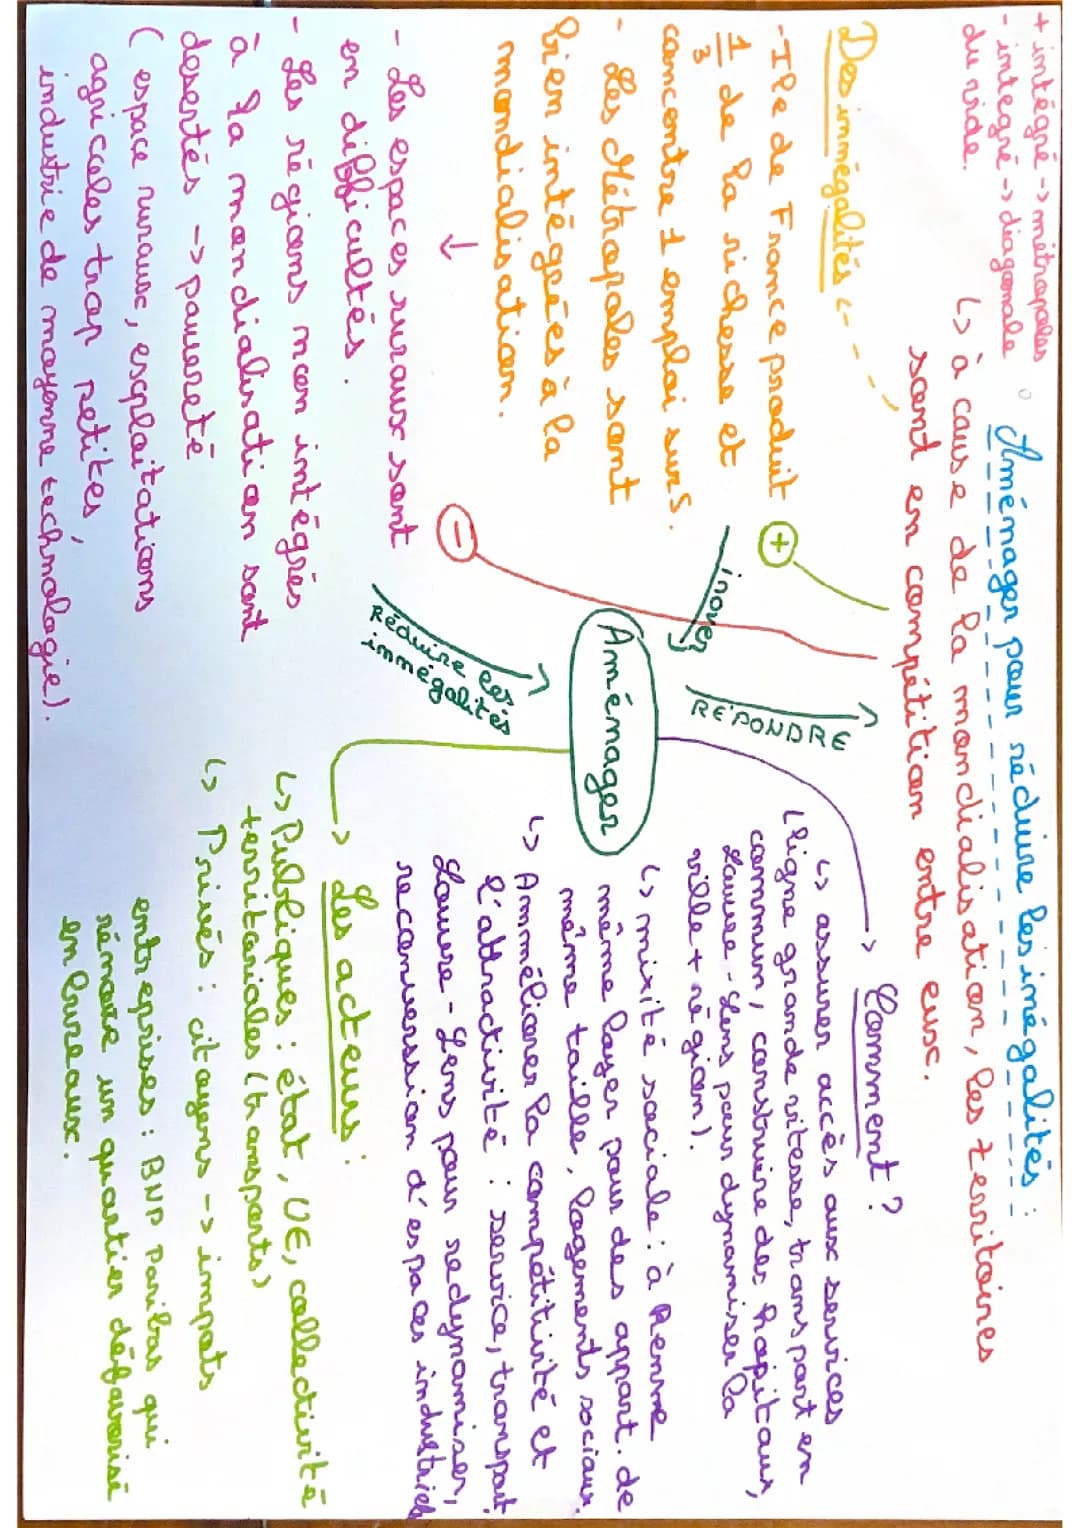 + intégré -> métropoles
- intégré -> diagonale
du vide.
Aménager pour réduire les inégalités :
↳ à cause de la mondialisation, les territoires
sont en compétition entre eux.
Des innégalités
- Ile de France produit
1/3 de la richesse et
concentre 1 emploi sur 5.
- Les Métropoles sont
bien intégrées à la
mondialisation.
↓
- Les espaces ruraux sont
en difficultés.
- Les régions non intégrés
à la mondialisation sont
desertés -> pauvreté
( espace ruraux, exploitations
agricoles trop petites,
industrie de moyenne technologie).
+
-
inover
RÉPONDRE
Aménager
Réduire les
innégalités
Comment ?
↳ assurer accès aux services
(ligne grande vitesse, transport en
commun, construire des hôpitaux,
Louvre-Lens pour dynamiser la
ville + région).
↳ mixité sociale : à Renne
même loyer pour des appart. de
même taille, logements sociaux.
↳ Amméliorer la compétitivité et
l'attractivité : service, transport
Louvre-Lens pour redynamiser,
reconverssion d'espaces industriels
Les acteurs :
↳ Publiques : état, UE, collectivité
territoriales (transports)
↳ Privés : citoyens -> impots
entreprises : BNP Paribas qui
rénove un quartier défavorisé
en bureaux.